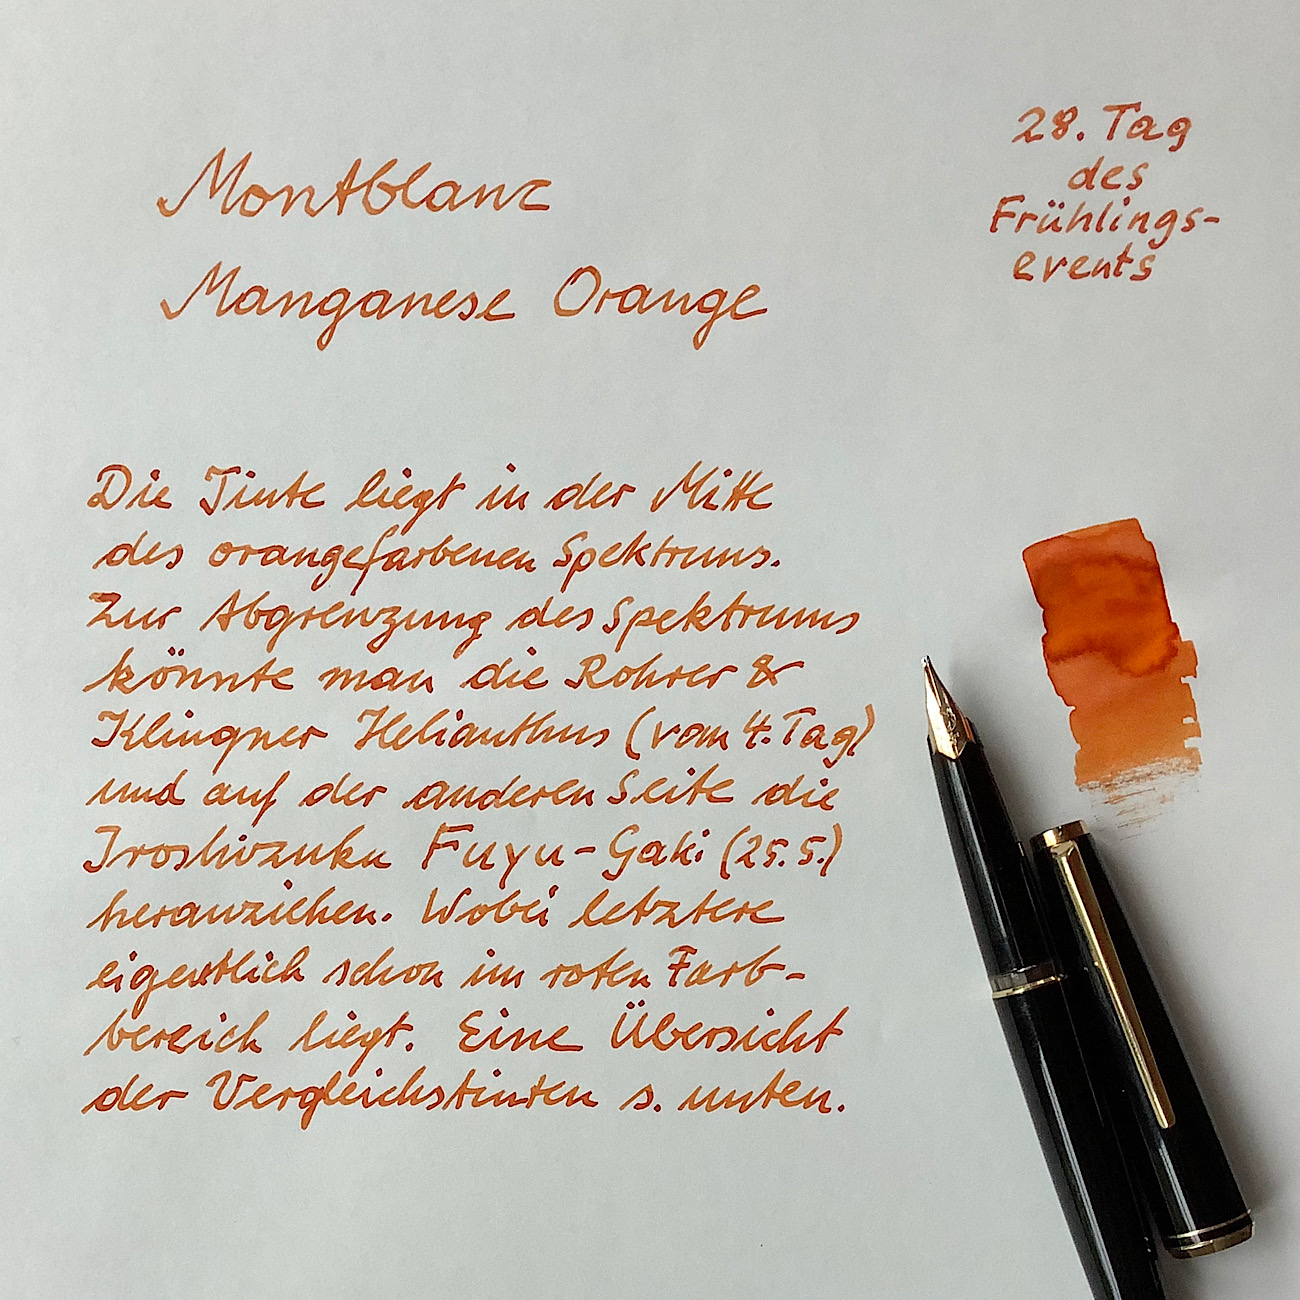 28. Tag
des
Frühlings-
events
Montblanc
Manganese Orange
Die Tinte liegt in der Mitte
des orangefarbenen Spektrums.
Zur Abgrenzung des Spektrums
könnte man die Rohrer &
Klingner Helianthus (vom 4. Tag)
und auf der anderen Seite die
Iroshizuku Fuyu-Gaki (25.5.)
heranziehen. Wobei letztere
eigentlich schon im roten Farb-
bereich liegt. Eine Übersicht
der Vergleichstinten s. unten.